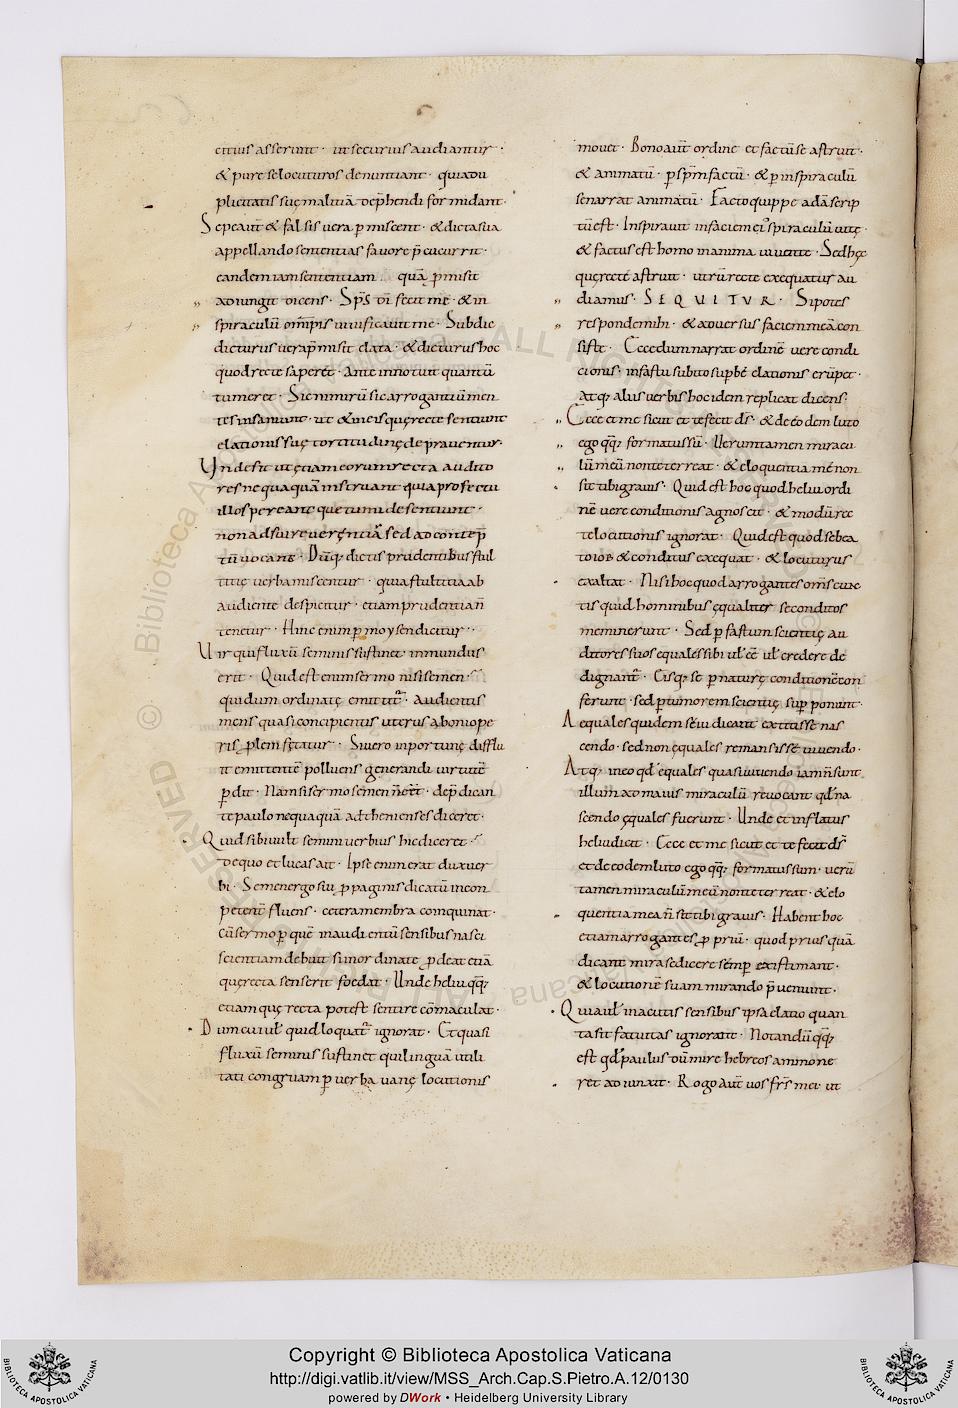 citius asserunt · ut securius audiantur ·
& pure se locuturos denuntiant · quia du
plicitatis suę malitiā dep̄hendi formidant ·
Sepe aut̄ & falsis uera p̱miscent · & dicta sua
appellando sententias fauore p̄cucurrit ·
eandem iam sententiam quā p̄misit
adiungit dicens · Sp̄s dī fecit me · & in
spiraculū om̄ip̄s uiuificauit me · Subdie
dicturus uera p̄misit elata · & dicturus hoc
quod recte saperet · Ante innotuit quantū
tumeret · Si enim ut sic arrogantiū men
tes insaniunt · ut & in eis quę recte sentiunt
elationis suę tortitudinę deprauentur ·
Unde fit ut etiam eorum recta audito
res nequaquā instruant quia profectu
illos pereant que tumide sentiunt ·
non ad sui reuerentiā sed ad contēp
tū uocant · Dūq; dictis prudentibus stul
titię uerba miscentur · quia stultitia ab
audiente despicitur · etiam prudentia n̄
tenetur · Hinc enim p̱ moysen dicitur ·
Uir qui fluxū seminis sustinet · inmundus
erit · Quid est enim sermo nisi semen ·
qui dum ordinatę emittit̄ · audientis
mens quasi concipientis uterus a boni ope
ris p̱lem fętatur · Si uero inportunę difflu
it emittentē polluens generandi uirtutē
p̱dit · Nam si sermo semen n̄ eēt · dep̄dican
te paulo nequaquā athenienses dicerent ·
Quid sibi uult seminiuerbius hic dicere ·
de quo et lucas ait · Ipse enim erat dux uer
bi · Semen ergo siu p̱paginis dicatū incon
petent̄ fluens · cetera membra coinquinat ·
cū sermo p̱ quē in audientiū sensibus nasci
scientiam debuit si inordinate p̱deat etiā
quę recta senserit foedat · Unde heliu q̄q;
etiam quę recta potest sentire cōmaculat ·
Dum cui ul̄ quid loquat̄ ignorat · Et quasi
fluxū seminis sustinet qui linguā utili
tati congruam p̱ uerba uanę locutionis
mouet · Bono aut̄ ordine et factū se astruit ·
& animatū · p̱ sp̄m factū · & p̱ inspiraculū
se narrat animatū · Facto quippe adā scrip
tū est · Inspirauit in faciem ei' spiraculū uitę ·
& factus est homo in anima uiuente · Sed hęc
quę recte astruit · utrū recte exequatur au
diamus · SEQUITUR · Si potes
responde mihi · & aduersus faciem meā con
siste · Ecce dum narrat ordinē uere condi
cionis · in fastu subito supbę elationis erūpit ·
Atq; aliis uerbis hoc idem replicat dicens ·
Ecce et me sicut et te fecit ds̄ · & de eodem luto
ego q̄q; formatus sū · Ueruntamen miracu
lū meū non te terreat · & eloquentia mea non
sit tibi grauis · Quid est hoc quod heliu ordi
nē uere conditionis agnoscit · & modū rec
te locutionis ignorat · Quid est quod se bea
to iob & conditus exequat · & locuturus
exaltat · Nisi hoc quod arrogantes om̄s cunc
tis quid hominibus equaliter se conditos
meminerunt · Sed p̱ fastum scientię au
ditores suos equales sibi ul̄ eē ul̄ credere de
dignant̄ · Eisq; se p̱ naturę conditionē con
ferunt · sed p̱ tumorem scientię sup̱ponunt ·
Aequales quidem se eis dicant extitisse nas
cendo · sed non ęquales remansisse uiuendo ·
Atq; in eo qd̄ equales quasi uiuendo iam n̄ sunt
illum ad maius miraculū reuocant qd̄ na
scendo ęquales fuerunt · Unde et inflatus
heliu dicit · Ecce et me sicut et te fecit ds̄
et de eodem luto ego q̄q; formatus sum · uerū
tamen miraculū meū non te terreat · & elo
quentia mea n̄ sit tibi grauis · Habent hoc
etiam arrogantes p̱priū · quod prius quā
dicant mira se dicere semp̱ existimant ·
& locutionē suam mirando p̄ueniunt ·
Quia ul̄ in acutis sensibus ipsa elatio quan
ta sit fatuitas ignorant · Notandū q̄q;
est qd̄ paulus dū mire hebreos ammone
ret adiunxit · Rogo aut̄ uos frs̄ mei · ut
© Biblioteca Apostolica Vaticana · ALL RIGHTS RESERVED
Copyright © Biblioteca Apostolica Vaticana
http://digi.vatlib.it/view/MSS_Arch.Cap.S.Pietro.A.12/0130
powered by DWork • Heidelberg University Library
BIBLIOTECA APOSTOLICA VATICANA
BIBLIOTECA APOSTOLICA VATICANA